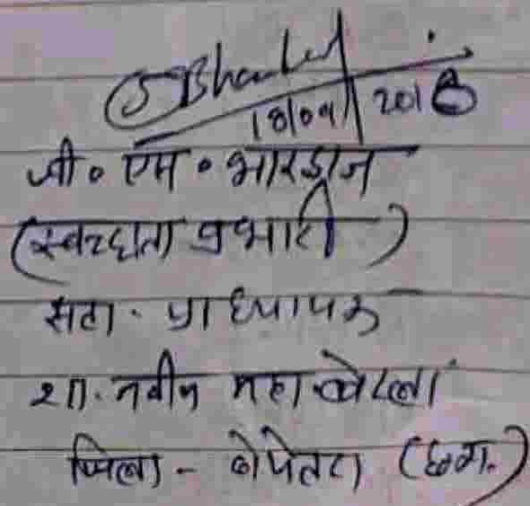 18/09/2018
जी॰ एम॰ भारद्वाज
(स्वच्छता प्रभारी)
सहा. प्राध्यापक
शा. नवीन महा. बेरला
जिला - बेमेतरा (छग.)